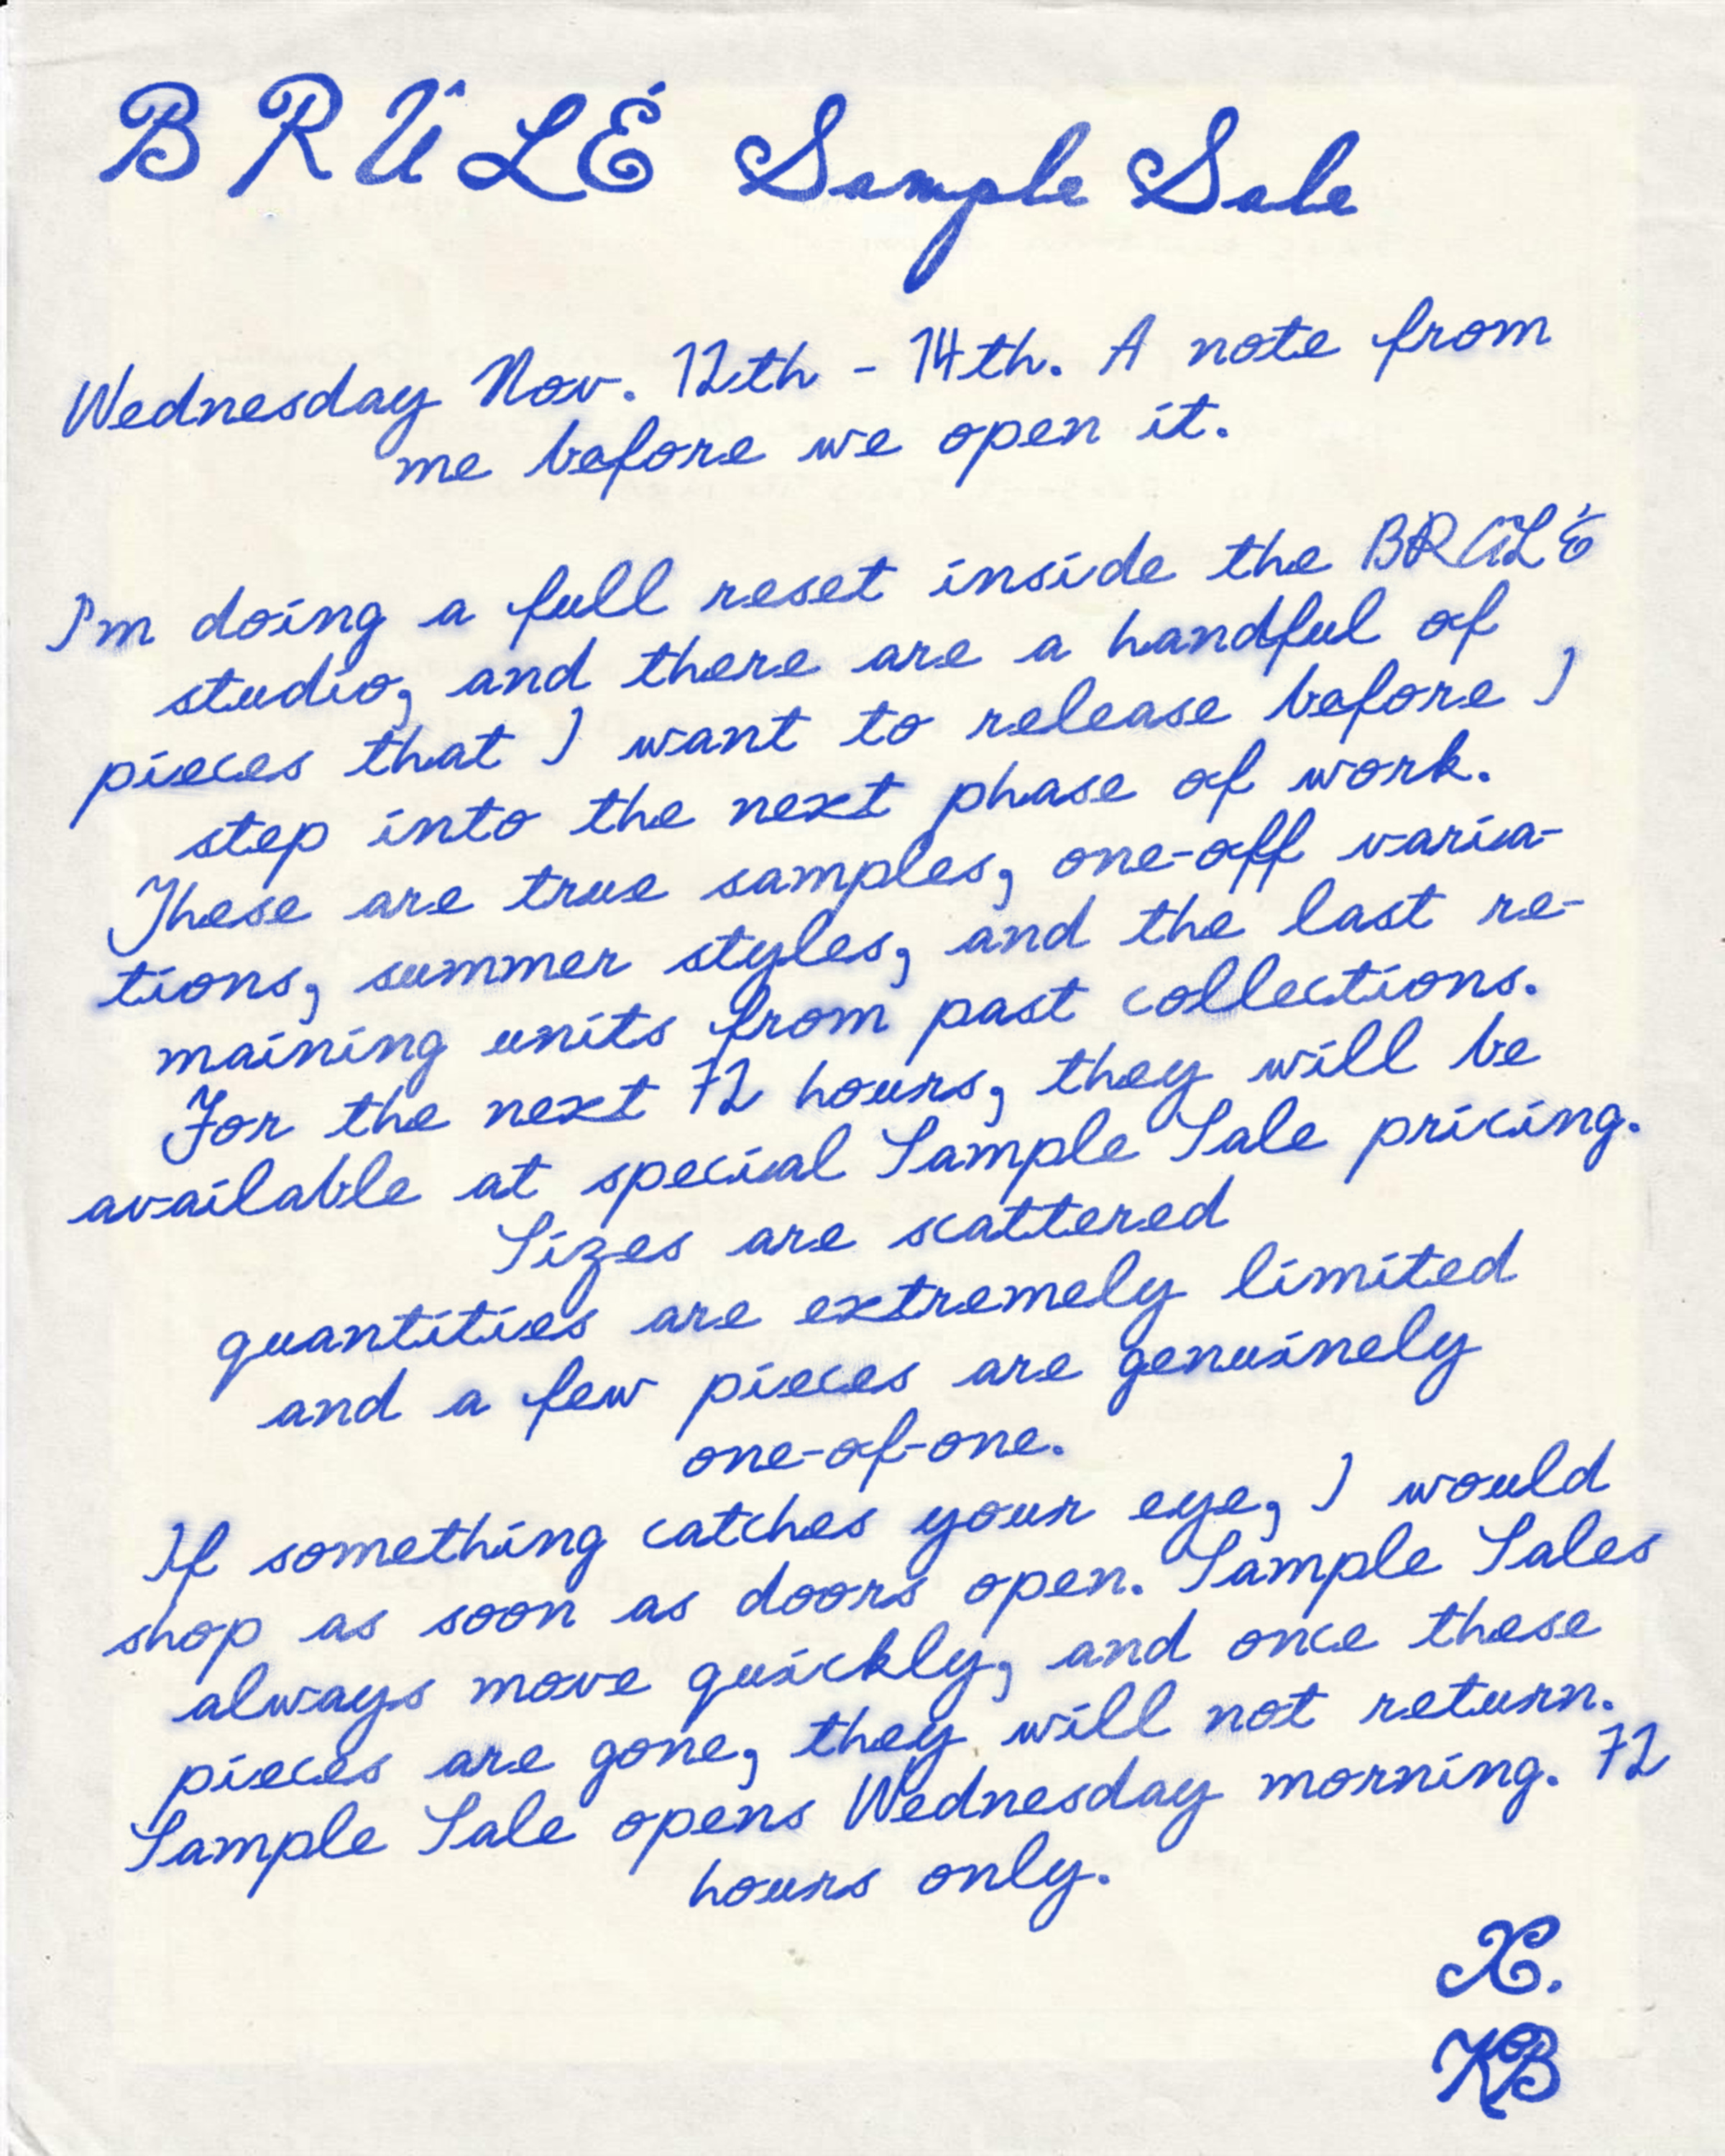 BRÛLÉ Sample Sale
Wednesday Nov. 12th - 14th. A note from
me before we open it.
I'm doing a full reset inside the BRÛLÉ
studio, and there are a handful of
pieces that I want to release before I
step into the next phase of work.
These are true samples, one-off varia-
tions, summer styles, and the last re-
maining units from past collections.
For the next 72 hours, they will be
available at special Sample Sale pricing.
Sizes are scattered
quantities are extremely limited
and a few pieces are genuinely
one-of-one.
If something catches your eye, I would
shop as soon as doors open. Sample Sales
always move quickly, and once these
pieces are gone, they will not return.
Sample Sale opens Wednesday morning. 72
hours only.
X.
KB